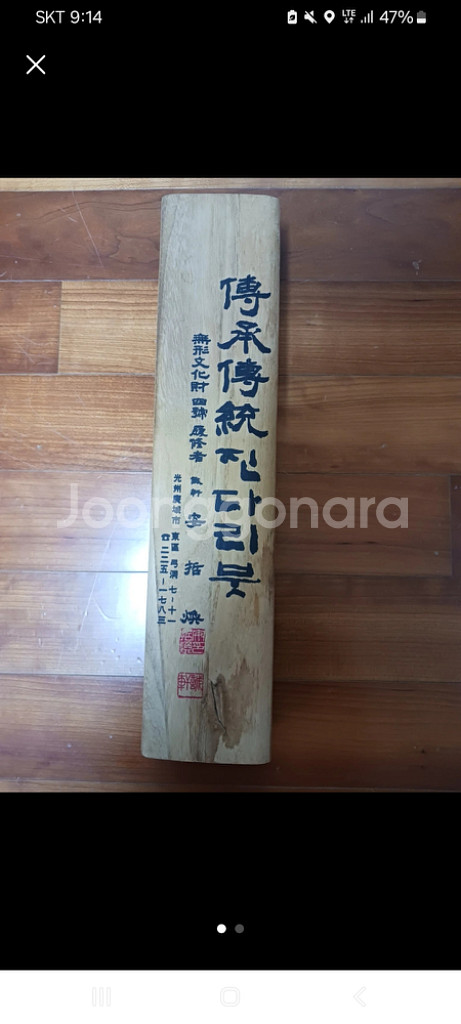 SKT 9:14
LTE
47%
傳承傳統진다리붓
無形文化財四號履修者
安
光州廣域市 東區 弓洞 七~十一
☎ 二二五-一七八三
Joonggonara